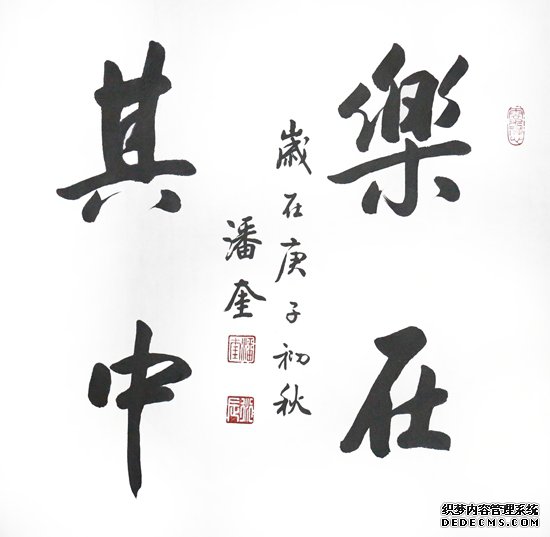 樂在
其中
歲在庚子初秋
潘奎
织梦内容管理系统
DEDECMS.COM